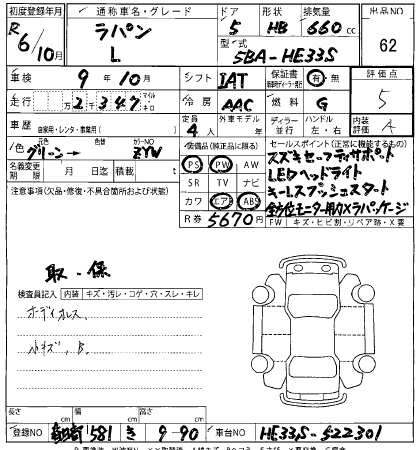 初度登録年月 通称車名・グレード ドア 形状 排気量 出品NO
R6/10月 ラパン L 5 HB 660cc 62
型式 5BA-HE33S
車検 9年10月 シフト IAT 保証書 有・無 評価点
走行 2347 マイル キロ 冷房 AAC 燃料 G 5
車歴 自家用・レンタ・事業用( ) 定員 4人 外車モデル 年 ディーラー 並行 ハンドル 左・右 内装評価 A
色 グリーン→ 色替 カラーNO ZYW 装備品(純正品に限る) セールスポイント(正常に機能するもの)
名義変更期限 月 日迄 積載 t PS PW AW スズキセーフティサポート
SR TV ナビ LEDヘッドライト
注意事項(欠品・修復・不具合箇所および状態) カワ エアB ABS キーレスプッシュスタート
R券 5670円 全方位モニター用カメラパッケージ
FW キズ・ヒビ割・リペア跡・X要
取・保
検査員記入 内装 キズ・汚レ・コゲ・穴・スレ・キレ
オーディオレス
小キズ、B
長さ cm 幅 cm 高さ cm
登録NO 581 き 9-90 車台NO HE33S-522301